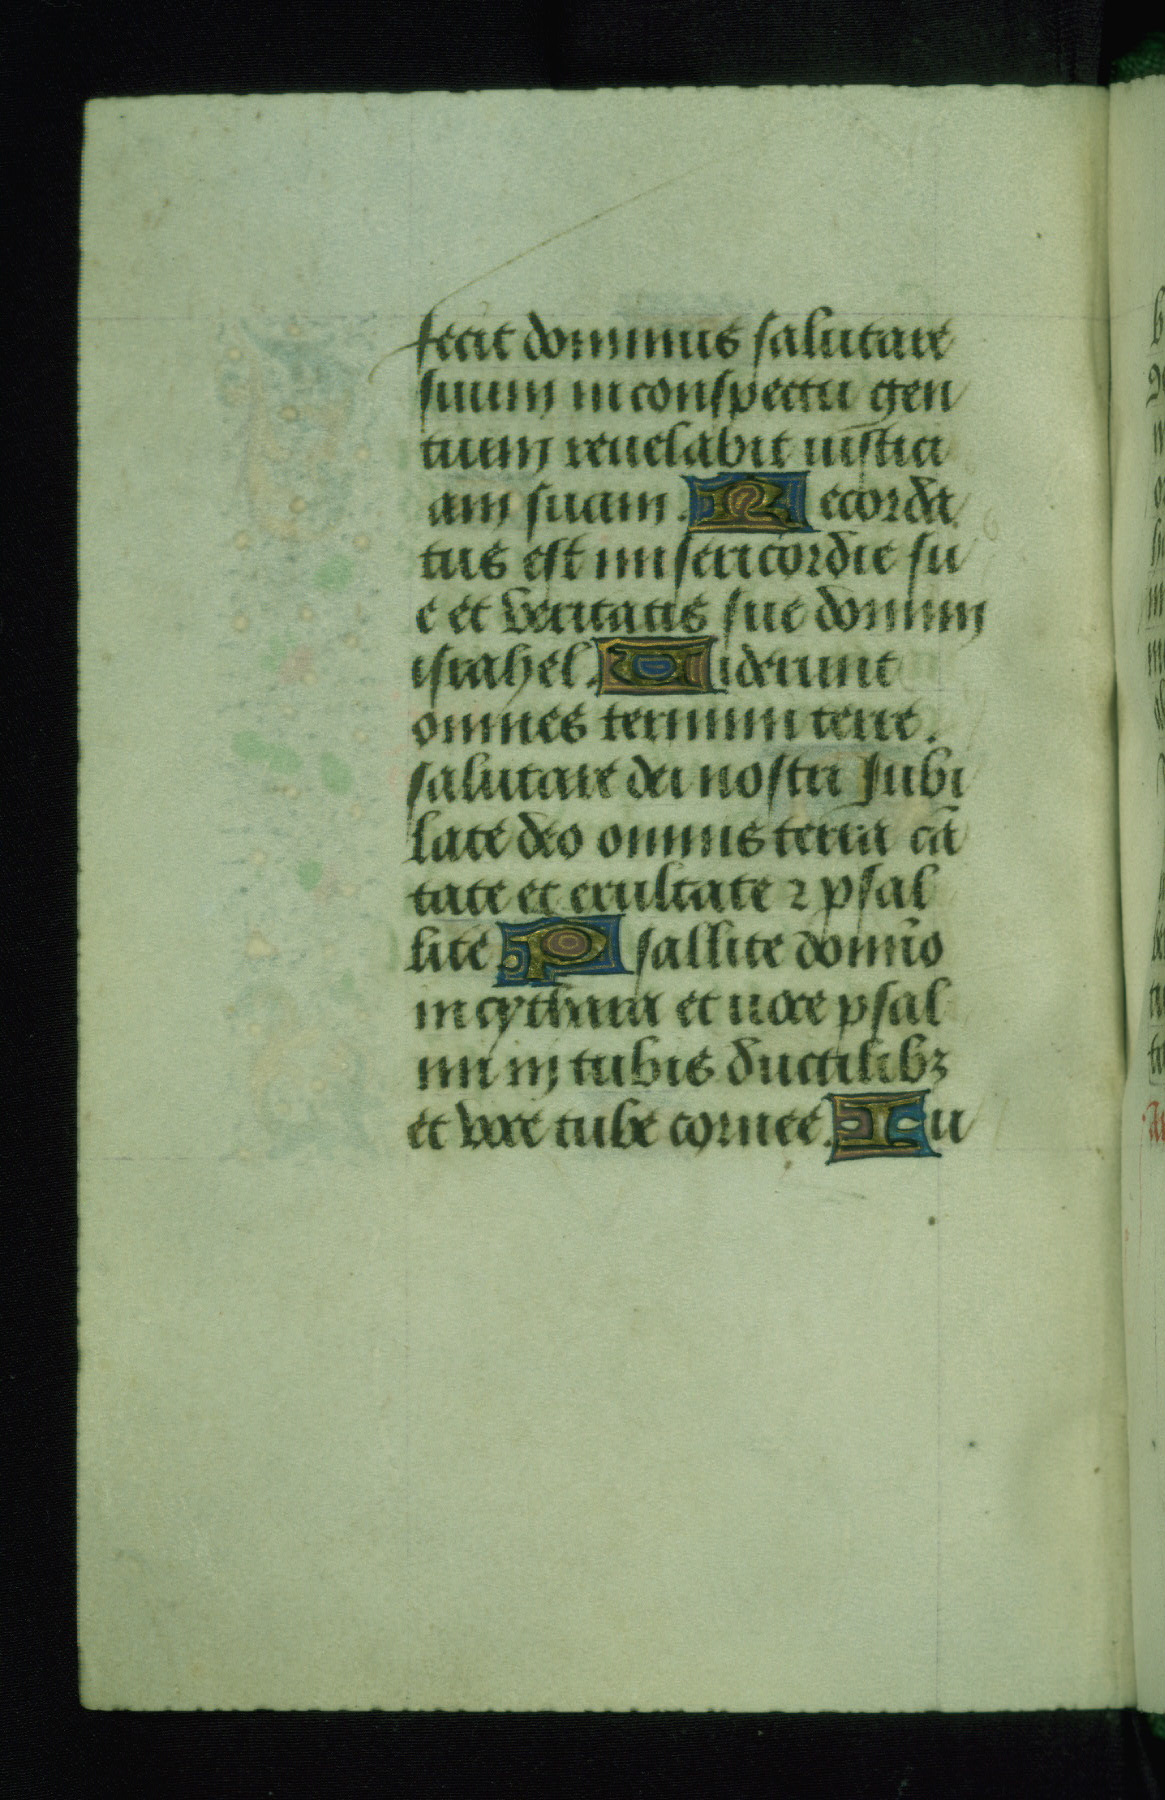 fecit dominus salutare
suum in conspectu gen
tium reuelabit iusticia
am suam. Recorda
tus est misericordie su
e et veritatis sue domum
israhel. Uiderunt
omnes termini terre.
salutare dei nostri Jubi
late deo omnis terra cā
tate et exultate ⁊ psal
lite Psallite domīo
in cythara et uoce psal
mi in tubis ductilibꝫ
et voce tube cornee. Iu